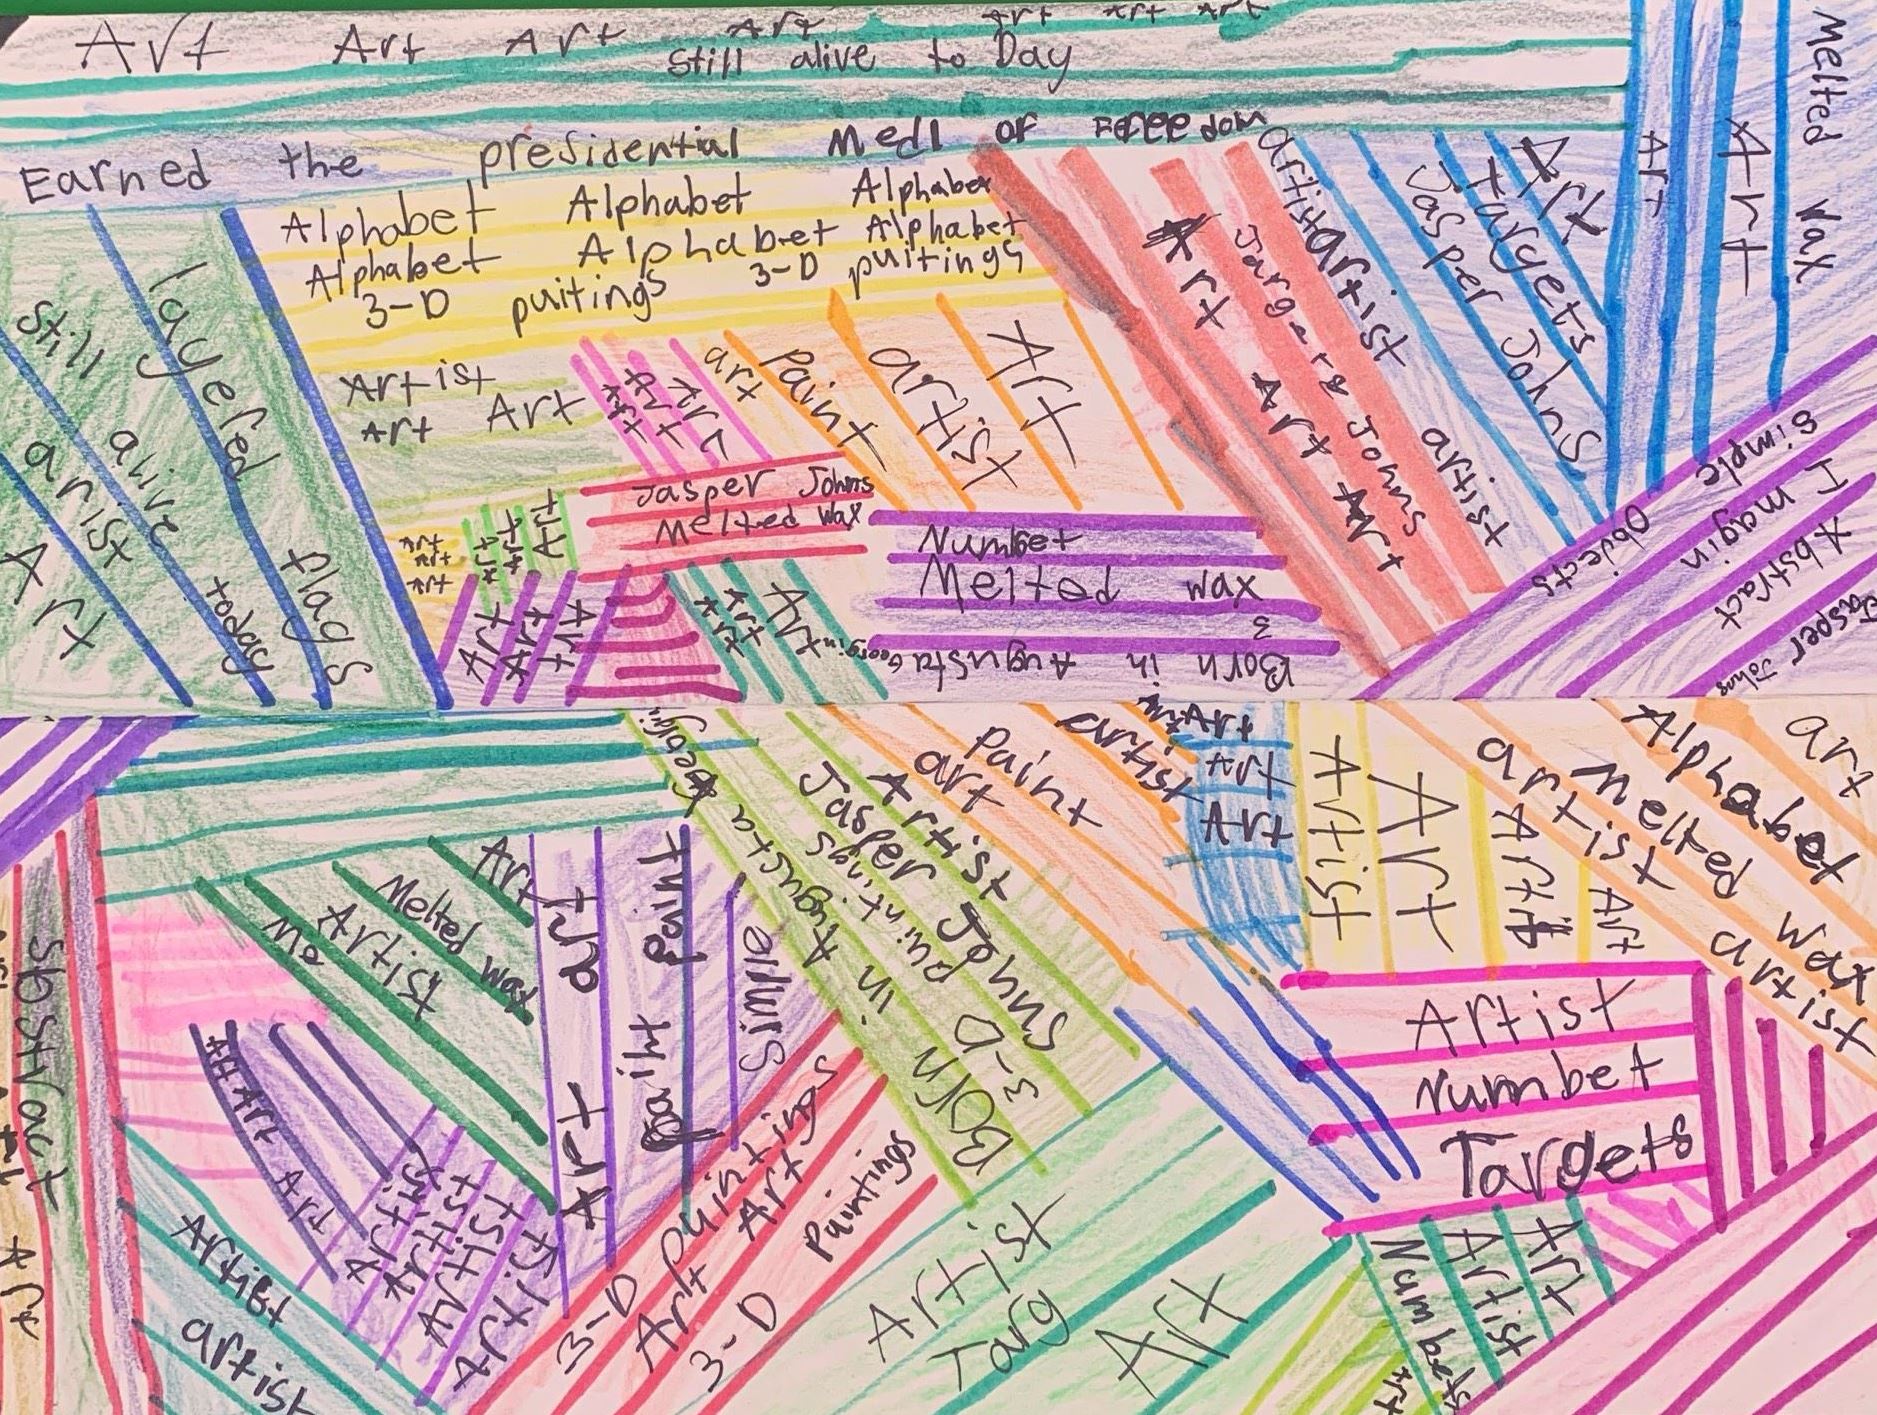 Art Art Art Art Art Art Art
Still alive to Day
Earned the presidential Medl of Freedom
Alphabet Alphabet Alphabet
Alphabet Alphabet Alphabet
3-D puitings 3-D puitings
Still alive today
layered flags
arist
Art
Artist
Art Art
Art Art Art
art paint
artist
Art
Jasper Johns
Melted wax
Art Art Art
Art Art Art
Art Art Art
Art Art Art
Number
Melted wax
3
Born in Augusta Georgin
Art Art Art
Jasper Johns
artist artist artist
Jasper Johns
Targets
Art
Art
Art
Melted Wax
Simple Objects
Imagin
Abstract
Jasper Johns
Abstract
Art
Me
Artist
Melted wax
Art
Art art
paint paint
Simple
Born in Augusta Georgin
3-D puintings
Jasper Johns
Artist
art
paint
artist
Art
Art
Art
Artist
Art
Art
Art
artist artist
Melted wax
Alphabet
art
Artist
Number
Targets
Art Art
Artist
Artist
Artist
Artist
Artist
artist
3-D puintings
Art Art
3-D Paintings
Artist
Targ
Art
Numbers
Artist
Art
Art